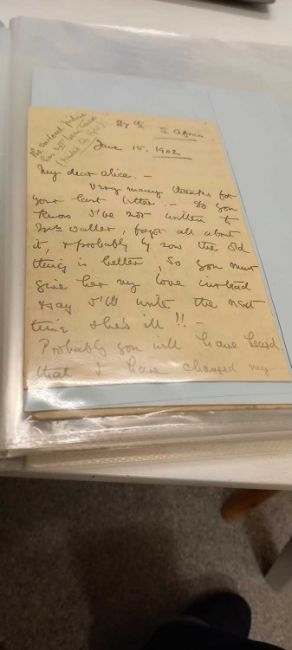 S. Africa
June 15. 1902
My dear Alice. —
Very many thanks for
your last letter. — Do you
know I've not written to
Mrs Waller, forgot all about
it, & probably by now the old
thing is better, so you must
give her my love instead
& say I'll write the next
time she's ill!! —
Probably you will have heard
that I have changed my